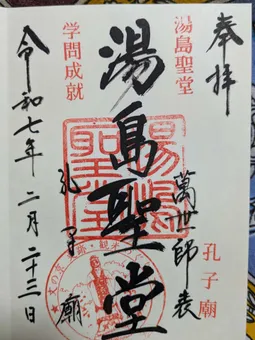 奉拝
湯島聖堂
萬世師表
孔子廟
湯島聖堂
湯島聖堂
孔子廟
学問成就
令和七年二月二十三日